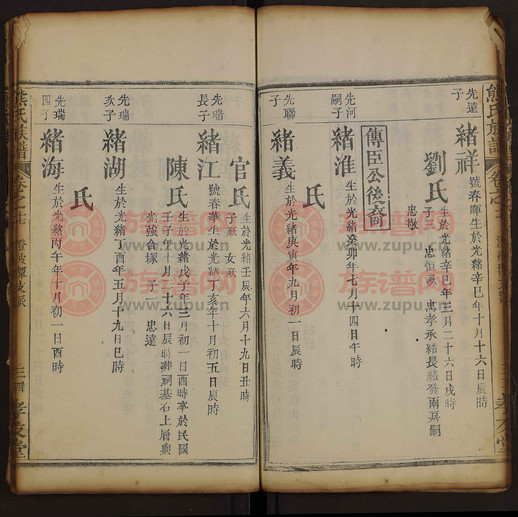 先達子
緒祥 號春暉生於光緒辛巳年十月十六日辰時
劉氏 生於光緒辛巳年三月二十六日戌時
子 忠恒 忠孝承緒長緒
忠敬
傳臣公後裔
先河嗣子
緒淮 生於光緒癸卯年七月十四日午時
先聯子
緒義 生於光緒庚寅年九月初一日辰時
氏
熊氏族譜
官氏 生於光緒壬辰年六月十九日丑時
子 女
先瑞長子
緒江 號春華生於光緒丁亥年十月初五日辰時
陳氏 生於光緒戊子年三月初一日酉時卒於民國
壬子年十月二十六日辰時葬祠基石上層與
合塚 子一 忠達
先瑞次子
緒湖 生於光緒丁酉年五月十九日巳時
氏
先瑞四子
緒海 生於光緒丙午年十月初一日酉時
熊氏族譜
卷之七
三四
孝友堂
族谱网
www.zupu.cn
族谱网
www.zupu.cn